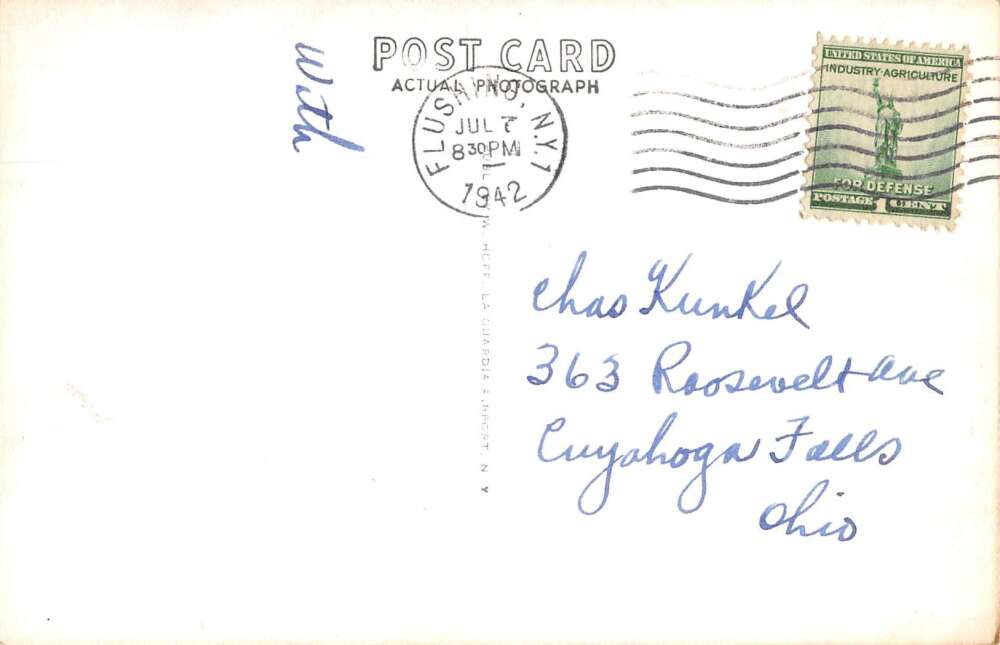 With
POST CARD
ACTUAL PHOTOGRAPH
FLUSHING, N.Y. 1
JUL 7
8 30 PM
1942
UNITED STATES OF AMERICA
INDUSTRY·AGRICULTURE
FOR DEFENSE
POSTAGE 1 CENT
LA GUARDIA AIRPORT, N Y
Chas Kunkel
363 Roosevelt Ave
Cuyahoga Falls
Ohio